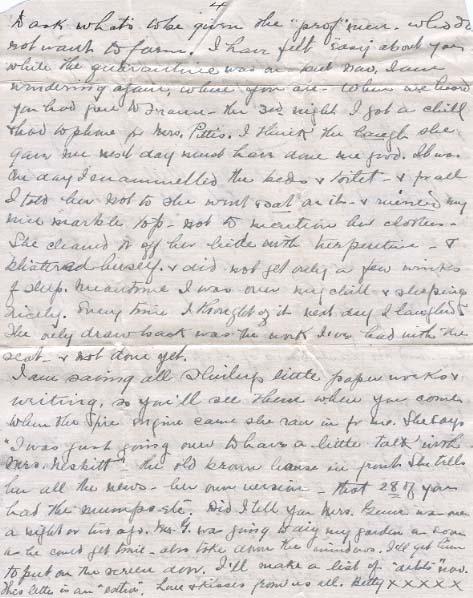 4
to ask what's to be given the "prof" men. who do
not want to farm. I have felt "easy" about you
while the quarantine was on - but now. I am
wondering again, where you are - When we heard
you had gone to France - the 3rd night I got a chill
& had to phone for Mrs. Pettis. I think the laugh she
gave me next day must have done me good. It was
the day I enammelled the beds & toilet - & for all
I told her not to she went & sat on it - & ruined my
nice marble top - not to mention her clothes -
She cleaned it off her hide with turpentine - &
blistered herself. & did not get only a few winks
of sleep. Meantime I was over my chill & sleeping
nicely. Every time I thought of it next day I laughed
The only draw back was the work I've had with the
seat - & not done yet.
I am saving all Shirleys little paper works &
writing, so you'll see them when you come
When the fire engine came she ran in for me. She says
"I was just going over to have a little talk" with
Mrs. Neskitt" - the old brown house in front She tells
her all the news - her own version - that 28 of you
had the mumps etc. Did I tell you Mrs. Gunn was over
a night or two ago. Mr. G. was going to dig my garden as soon
as he could get time - also take down the windows. I'll get him
to put on the screen door. I'll make a list of "debts" now.
This letter is an "extra". Love & Kisses from us all. Betty X X X X X